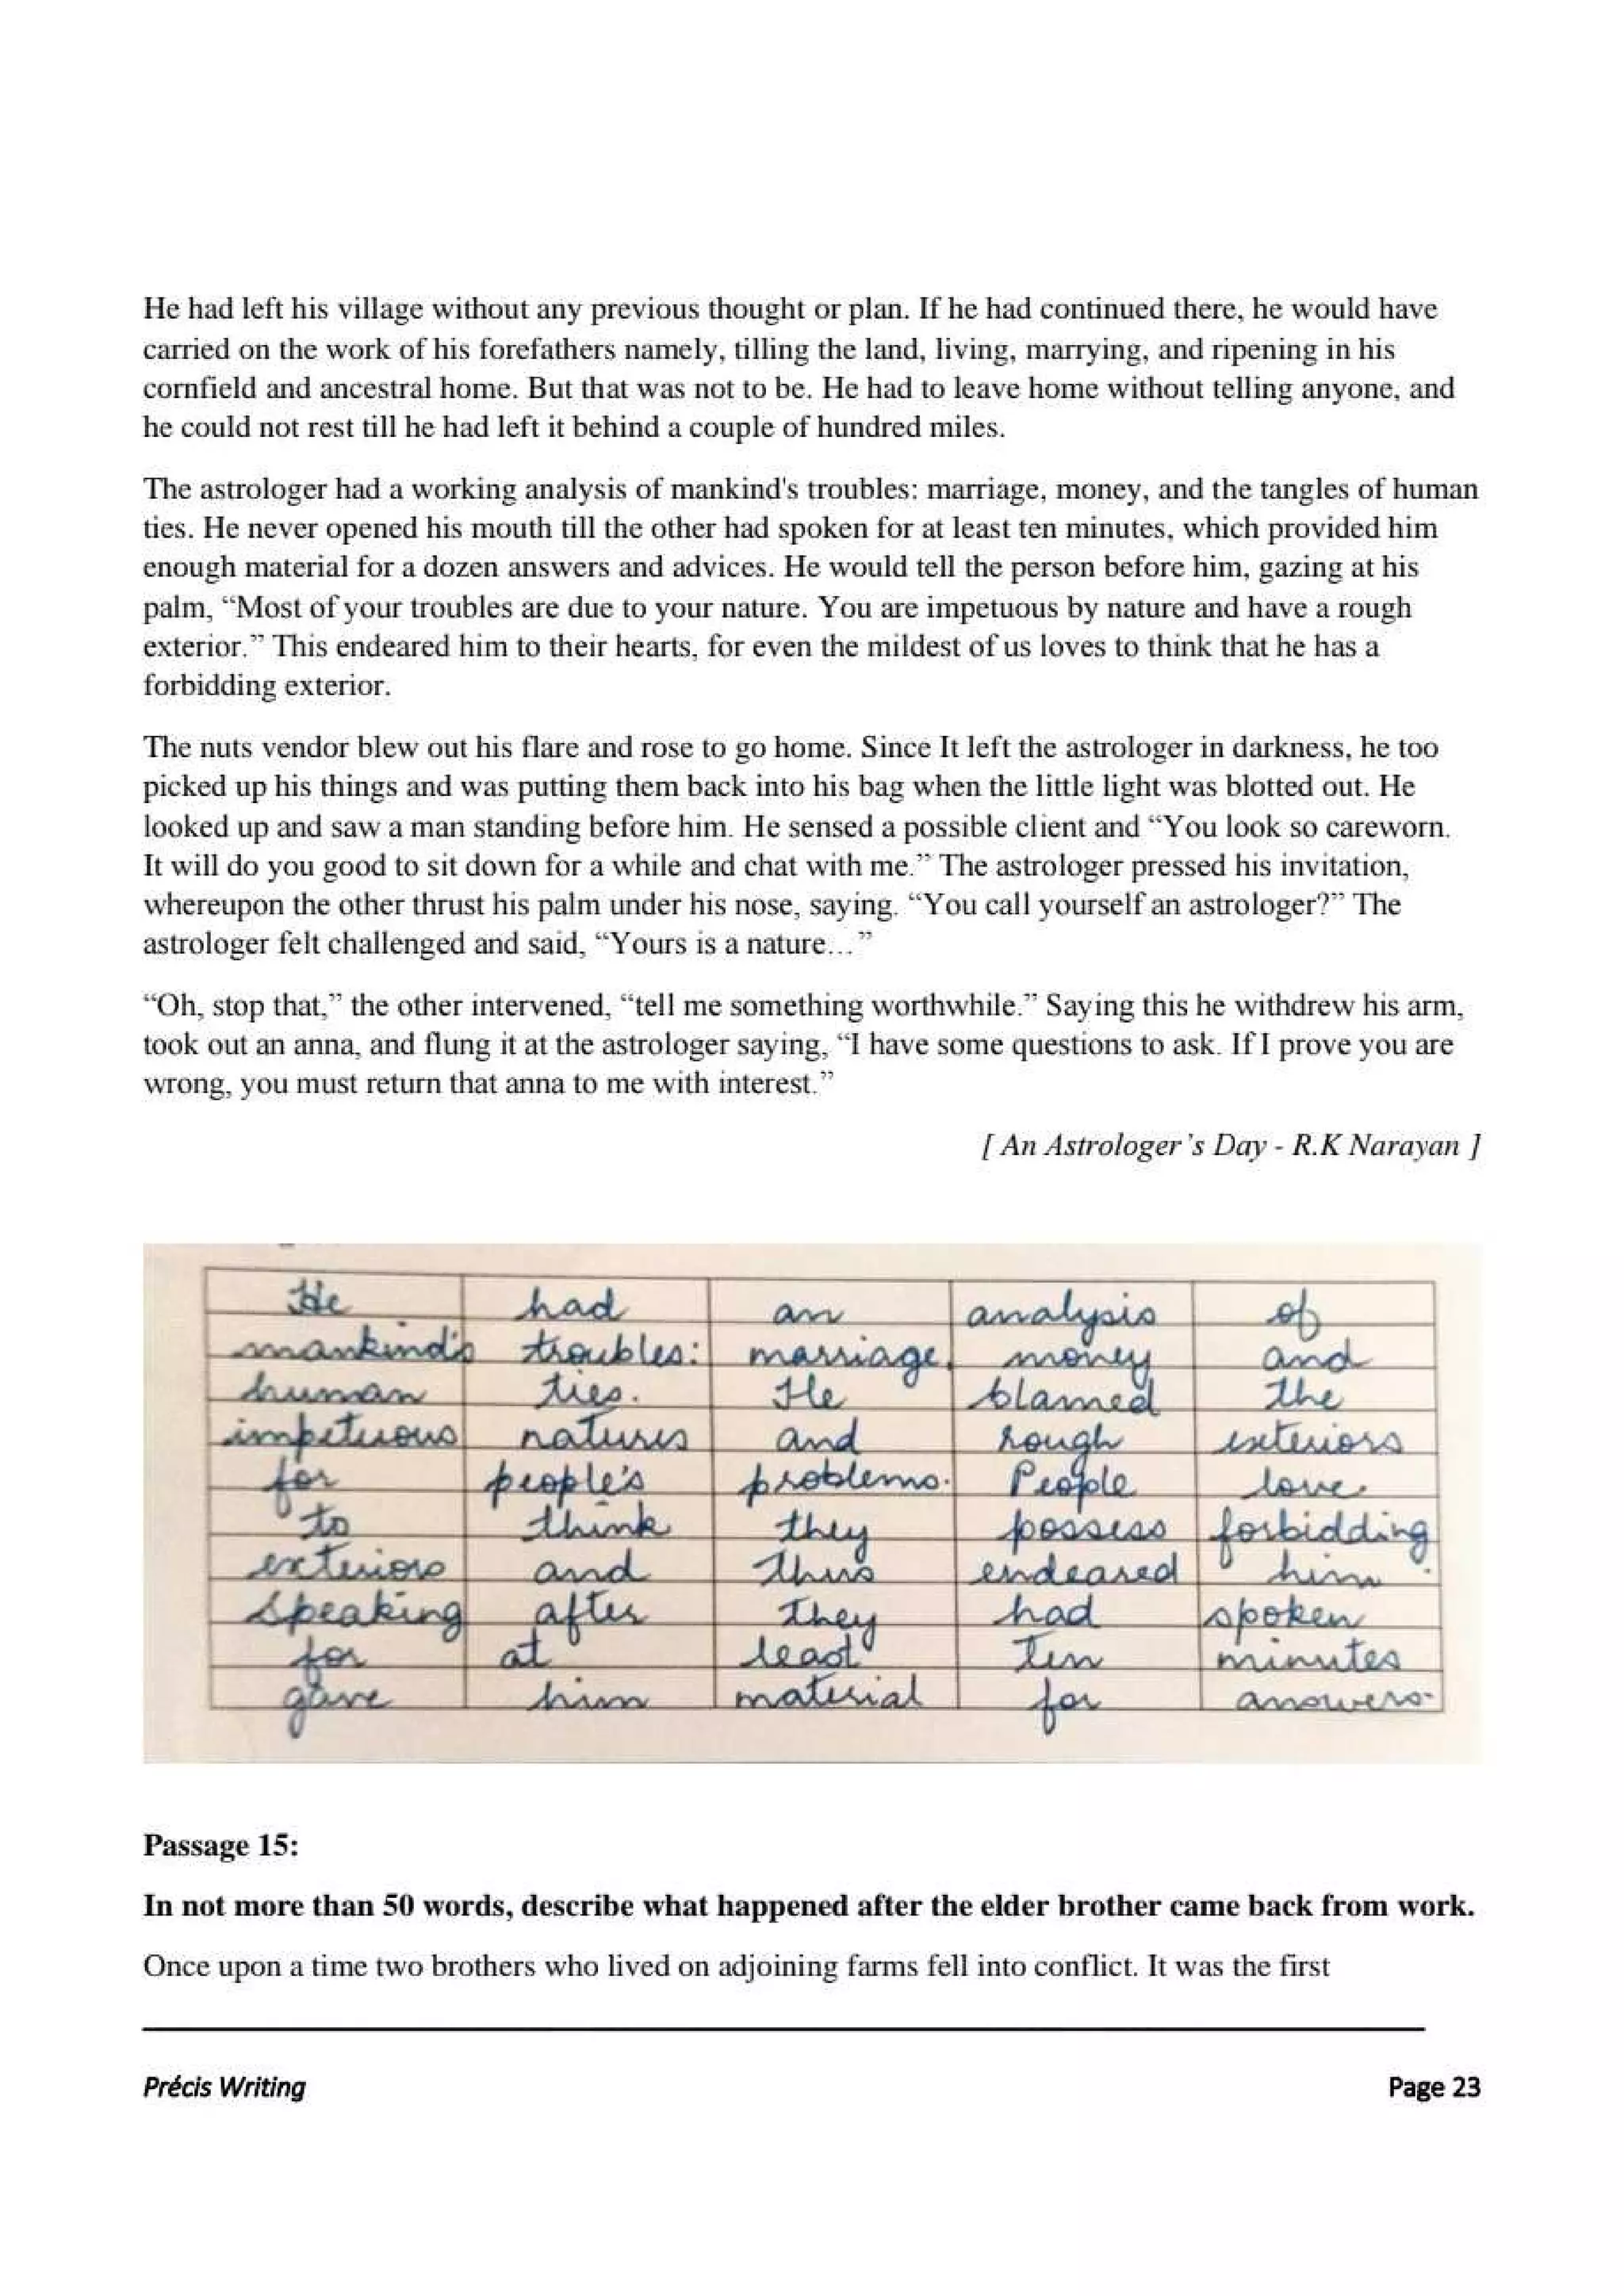 He had left his village without any previous thought or plan. If he had continued there, he would have
carried on the work of his forefathers namely, tilling the land, living, marrying, and ripening in his
cornfield and ancestral home. But that was not to be. He had to leave home without telling anyone, and
he could not rest till he had left it behind a couple of hundred miles.
The astrologer had a working analysis of mankind's troubles: marriage, money, and the tangles of human
ties. He never opened his mouth till the other had spoken for at least ten minutes, which provided him
enough material for a dozen answers and advices. He would tell the person before him, gazing at his
palm, “Most of your troubles are due to your nature. You are impetuous by nature and have a rough
exterior.” This endeared him to their hearts, for even the mildest of us loves to think that he has a
forbidding exterior.
The nuts vendor blew out his flare and rose to go home. Since It left the astrologer in darkness, he too
picked up his things and was putting them back into his bag when the little light was blotted out. He
looked up and saw a man standing before him. He sensed a possible client and “You look so careworn.
It will do you good to sit down for a while and chat with me.” The astrologer pressed his invitation,
whereupon the other thrust his palm under his nose, saying. “You call yourself an astrologer?” The
astrologer felt challenged and said, “Yours is a nature…”
“Oh, stop that,” the other intervened, “tell me something worthwhile.” Saying this he withdrew his arm,
took out an anna, and flung it at the astrologer saying, “I have some questions to ask. If I prove you are
wrong, you must return that anna to me with interest.”
[ An Astrologer’s Day - R.K Narayan ]
He had an analysis of
mankind's troubles: marriage, money and
human ties. He blamed the
impetuous natures and rough exteriors
for people's problems. People love
to think they possess forbidding
exteriors and thus endeared him.
Speaking after they had spoken
for at least ten minutes
gave him material for answers.
Passage 15:
In not more than 50 words, describe what happened after the elder brother came back from work.
Once upon a time two brothers who lived on adjoining farms fell into conflict. It was the first
Précis Writing Page 23